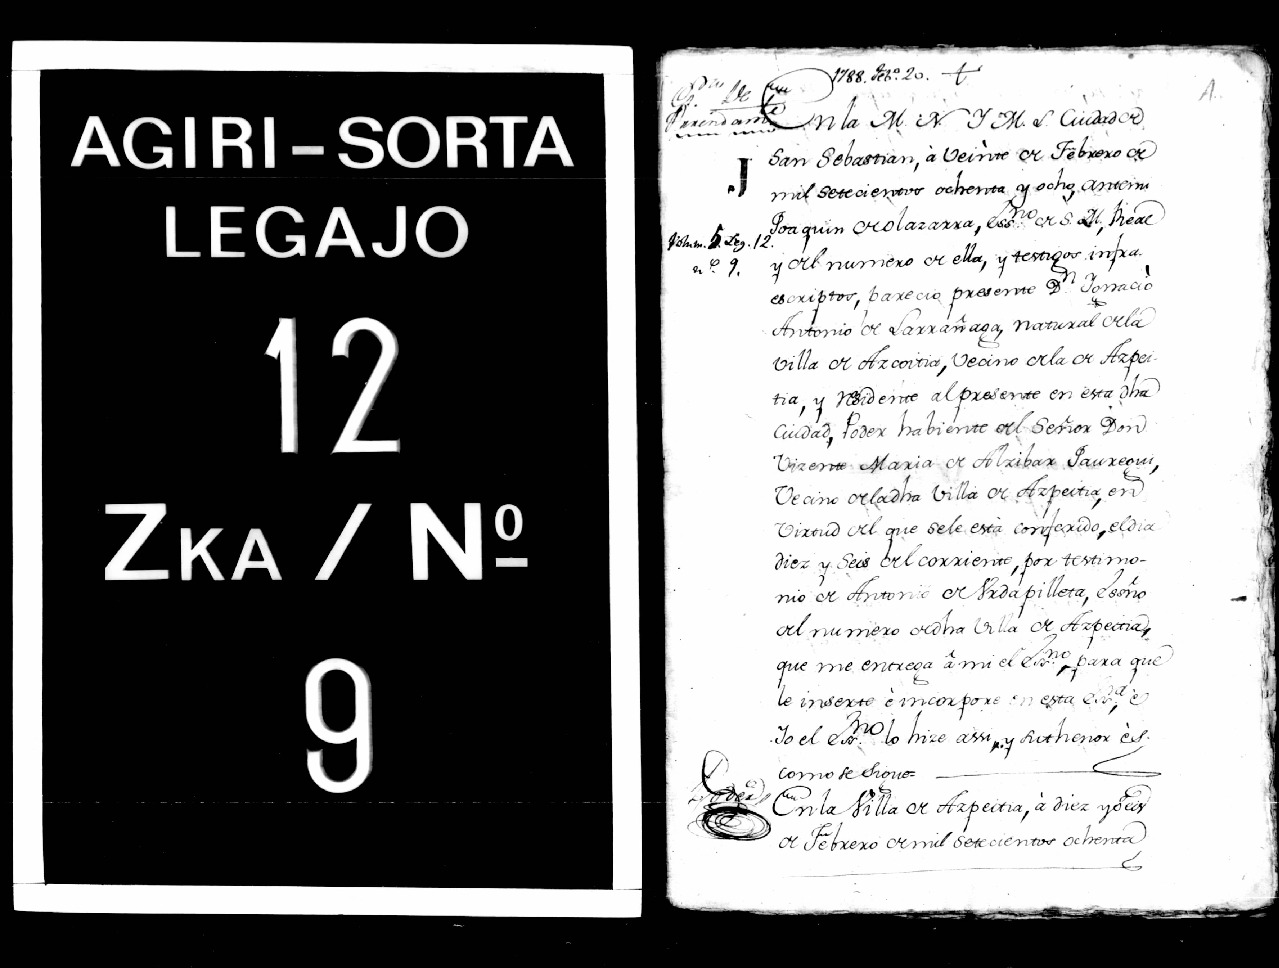 AGIRI-SORTA
LEGAJO
12
ZKA / Nº
9
1788. Febº. 20. +
A.
Arrendamto
En la M. N. Y M. L. Ciudad de
San Sebastian, à Veinte de Febrero de
mil setecientos ochenta y ocho, antemi
Joaquin de olazarra, Essno de S. M., Real
Volum. 5. Leg. 12.
nº 9.
y del numero de ella, y testigos infra-
escriptos, parecio presente Dn. Ignacio
Antonio de Larrañaga, natural de la
Villa de Azcoitia, Vecino de la de Azpei-
tia, y residente al presente en esta dha
Ciudad, Poder habiente del Señor Don
Vizente Maria de Alzibar Jauregui,
Vecino de la dha Villa de Azpeitia, en
Virtud del que se le està conferido, el dia
diez y Seis del corriente, por testimo-
nio de Antonio de Urdapilleta, Essño
del numero de dha Villa de Azpeitia,
que me entrega à mi el Essno, para que
le inserte è incorpore en esta Essra, è
Yo el Essno lo hize assi, y su thenor ès
como se sigue=
Poder
En la Villa de Azpeitia, à diez y Seis
de Febrero de mil setecientos ochenta